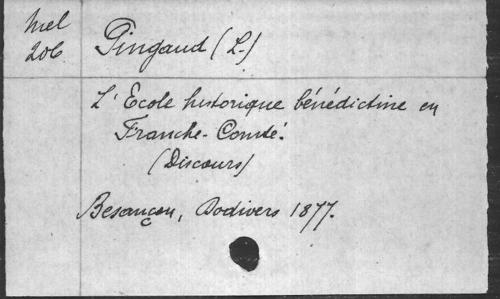 Mel
206
Pingaud (L-)
L'Ecole historique bénédictine en
Franche-Comté.
(Discours)
Besançon, Dodivers 1877.